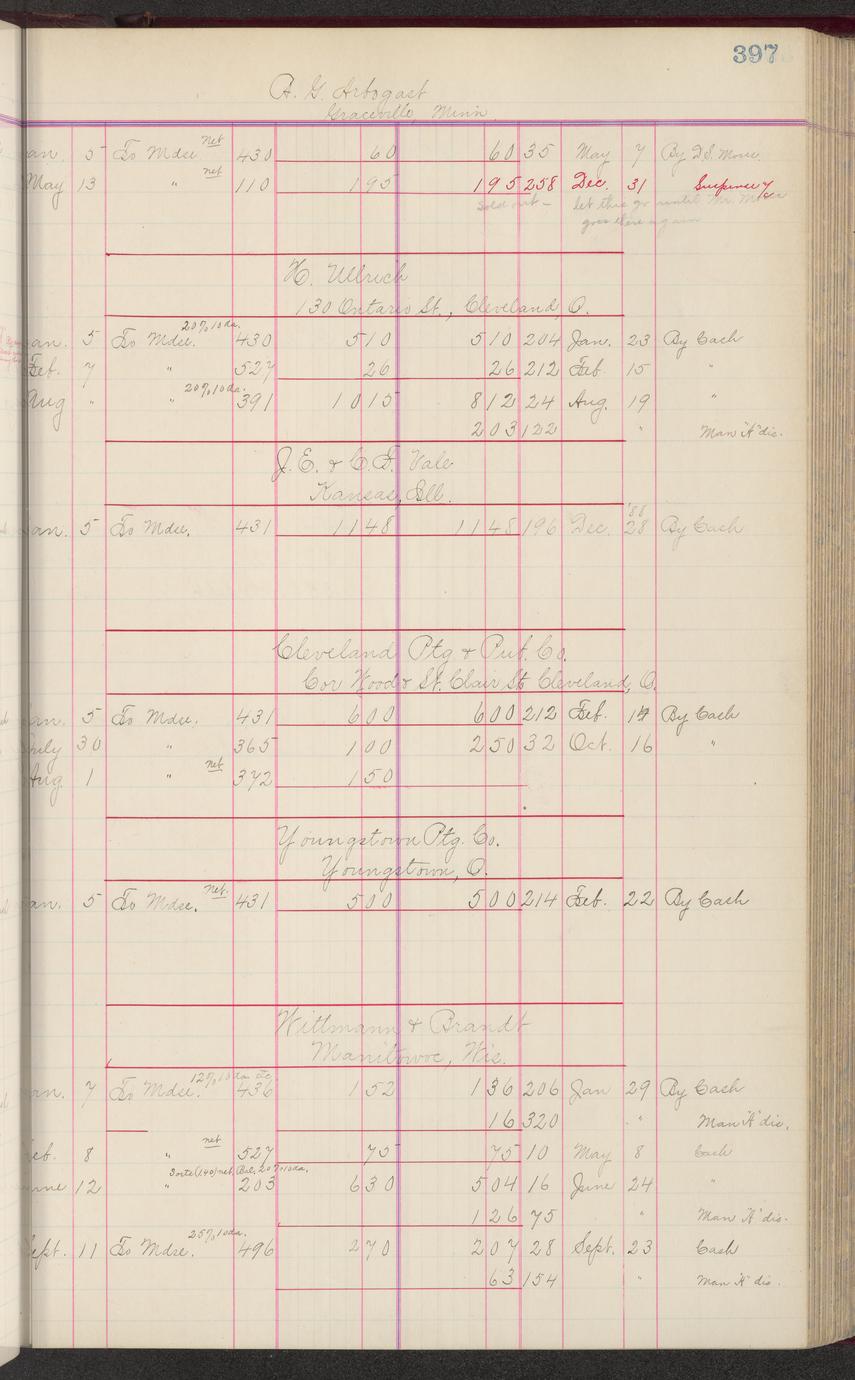 397
A. G. Arbogast
Graceville, Minn.
an. 5 To Mdse net 430 60 60 35 May 7 By D.S. Morse.
May 13 " net 110 195 195 258 Dec. 31 Suspense
Sold out - let this go until Mr.
goes there again
H. Ullrich
130 Ontario St., Cleveland, O.
an. 5 To Mdse. 20% 10 da. 430 510 510 204 Jan. 23 By Cash
Feb. 7 " 527 26 26 212 Feb. 15 "
Aug " " 20% 10 da. 391 1015 812 24 Aug. 19 "
203 122 " Man "A" dis.
J. E. & C. F. Vale
Kansas, Ill.
an. 5 To Mdse. 431 1148 1148 196 Dec. '88 28 By Cash
Cleveland Ptg & Pub. Co.
Cor Wood & St. Clair Sts Cleveland, O.
an. 5 To Mdse. 431 600 600 212 Feb. 14 By Cash
July 30 " 365 100 250 32 Oct. 16 "
Aug. 1 " net 372 150
Youngstown Ptg. Co.
Youngstown, O.
an. 5 To Mdse. net. 431 500 500 214 Feb. 22 By Cash
Wittmann & Brandt
Manitowoc, Wis.
an. 7 To Mdse. 12% 10 da etc 436 152 136 206 Jan 29 By Cash
16 320 " Man "A" dis.
eb. 8 " net 527 75 75 10 May 8 Cash
une 12 " 3 orts (140) net, Bal. 20% 10 da. 203 630 504 16 June 24 "
126 75 " Man "A" dis.
ept. 11 To Mdse. 25% 10 da. 496 270 207 28 Sept. 23 Cash
63 154 " Man "A" dis.